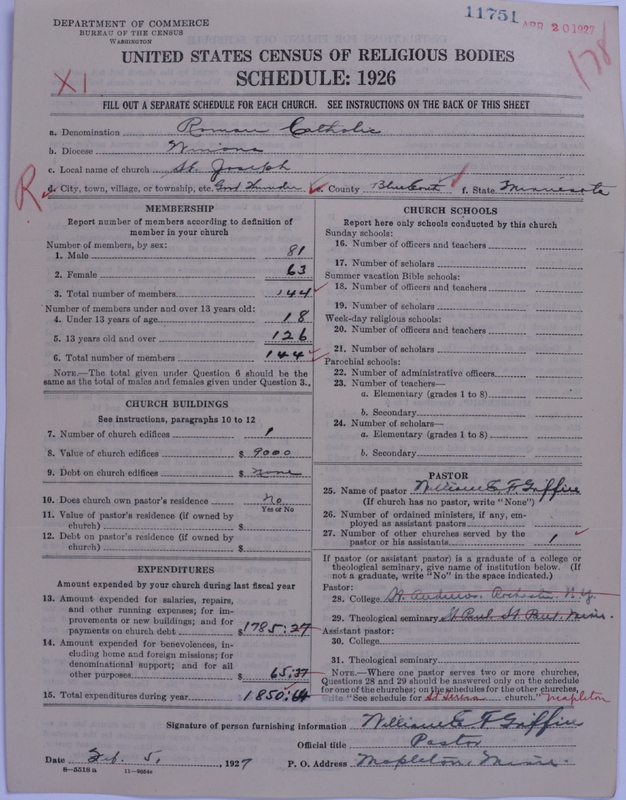 DEPARTMENT OF COMMERCE
BUREAU OF THE CENSUS
WASHINGTON
11751 APR 20 1927
178
UNITED STATES CENSUS OF RELIGIOUS BODIES
SCHEDULE: 1926
XI
FILL OUT A SEPARATE SCHEDULE FOR EACH CHURCH. SEE INSTRUCTIONS ON THE BACK OF THIS SHEET
a. Denomination Roman Catholic
b. Diocese Winona
c. Local name of church St. Joseph
R
d. City, town, village, or township, etc. Good Thunder e. County Blue Earth f. State Minnesota
MEMBERSHIP
Report number of members according to definition of
member in your church
Number of members, by sex:
1. Male 81
2. Female 63
3. Total number of members 144
Number of members under and over 13 years old:
4. Under 13 years of age 18
5. 13 years old and over 126
6. Total number of members 144
NOTE.—The total given under Question 6 should be
same as the total of males and females given under Question 3.
CHURCH BUILDINGS
See instructions, paragraphs 10 to 12
7. Number of church edifices 1
8. Value of church edifices $ 9000
9. Debt on church edifices $ none
10. Does church own pastor's residence No
Yes or No
11. Value of pastor's residence (if owned by
church) $
12. Debt on pastor's residence (if owned by
church) $
EXPENDITURES
Amount expended by church during last fiscal year
13. Amount expended for salaries, repairs,
and other running expenses; for im-
provements or new buildings; and for
payments on church debt $ 1785.27
14. Amount expended for benevolences, in-
cluding home and foreign missions; for
denominational support; and for all
other purposes $ 65.37
15. Total expenditures during year 1850.64
CHURCH SCHOOLS
Report here only schools conducted by this church
Sunday schools:
16. Number of officers and teachers
17. Number of scholars
Summer vacation Bible schools:
18. Number of officers and teachers
19. Number of scholars
Week-day religious schools:
20. Number of officers and teachers
21. Number of scholars
Parochial schools:
22. Number of administrative officers
23. Number of teachers—
a. Elementary (grades 1 to 8)
b. Secondary
24. Number of scholars—
a. Elementary (grades 1 to 8)
b. Secondary
PASTOR
25. Name of pastor William E. F. Griffin
(If church has no pastor, write "None")
26. Number of ordained ministers, if any, em-
ployed as assistant pastors
27. Number of other churches served by the
pastor or his assistants 1
If pastor (or assistant pastor) is a graduate of a college or
theological seminary, give name of institution below. (If
not a graduate, write "No" in the space indicated.)
Pastor:
28. College St. Andrews, Rochester, N.Y.
29. Theological seminary St. Paul, St. Paul, Minn.
Assistant pastor:
30. College
31. Theological seminary
NOTE.—Where one pastor serves two or more churches,
Questions 28 and 29 should be answered only on the schedule
for one of the churches; on the schedules for the other churches,
write "See schedule for St. Teresa church." Mapleton
Signature of person furnishing information William E. F. Griffin
Official title Pastor
Date Feb. 5, 1927 P. O. Address Mapleton, Minn.
8—5518 a 11—9054e